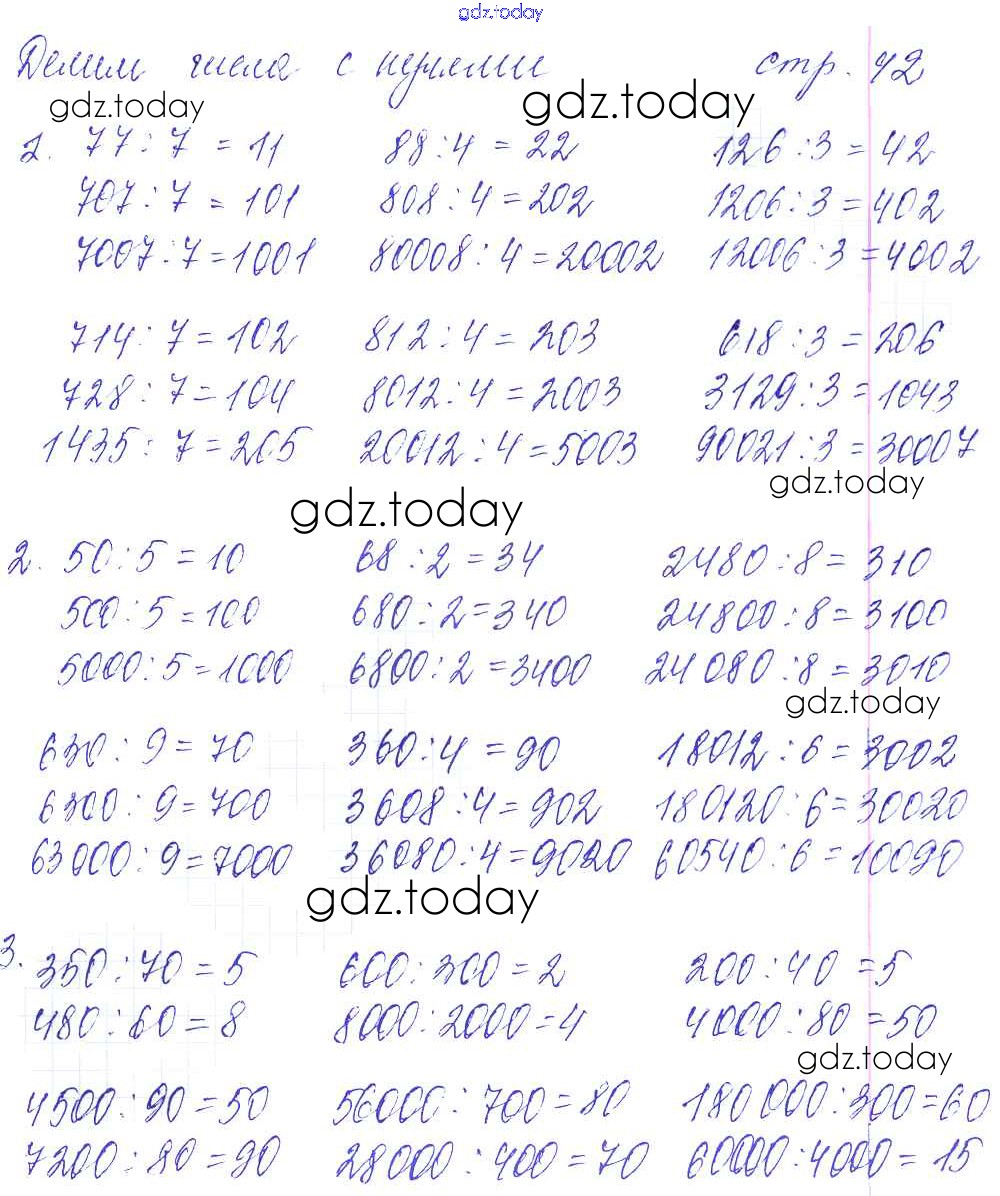 gdz.today
Делим числа с нулями стр. 42
gdz.today gdz.today
1. 77 : 7 = 11 88 : 4 = 22 126 : 3 = 42
707 : 7 = 101 808 : 4 = 202 1206 : 3 = 402
7007 : 7 = 1001 80008 : 4 = 20002 12006 : 3 = 4002
714 : 7 = 102 812 : 4 = 203 618 : 3 = 206
728 : 7 = 104 8012 : 4 = 2003 3129 : 3 = 1043
1435 : 7 = 205 20012 : 4 = 5003 90021 : 3 = 30007
gdz.today
gdz.today
2. 50 : 5 = 10 68 : 2 = 34 2480 : 8 = 310
500 : 5 = 100 680 : 2 = 340 24800 : 8 = 3100
5000 : 5 = 1000 6800 : 2 = 3400 24080 : 8 = 3010
gdz.today
630 : 9 = 70 360 : 4 = 90 18012 : 6 = 3002
6300 : 9 = 700 3608 : 4 = 902 180120 : 6 = 30020
63000 : 9 = 7000 36080 : 4 = 9020 60540 : 6 = 10090
gdz.today
3. 350 : 70 = 5 600 : 300 = 2 200 : 40 = 5
480 : 60 = 8 8000 : 2000 = 4 4000 : 80 = 50
gdz.today
4500 : 90 = 50 56000 : 700 = 80 180 000 : 300 = 60
7200 : 80 = 90 28000 : 400 = 70 60000 : 4000 = 15